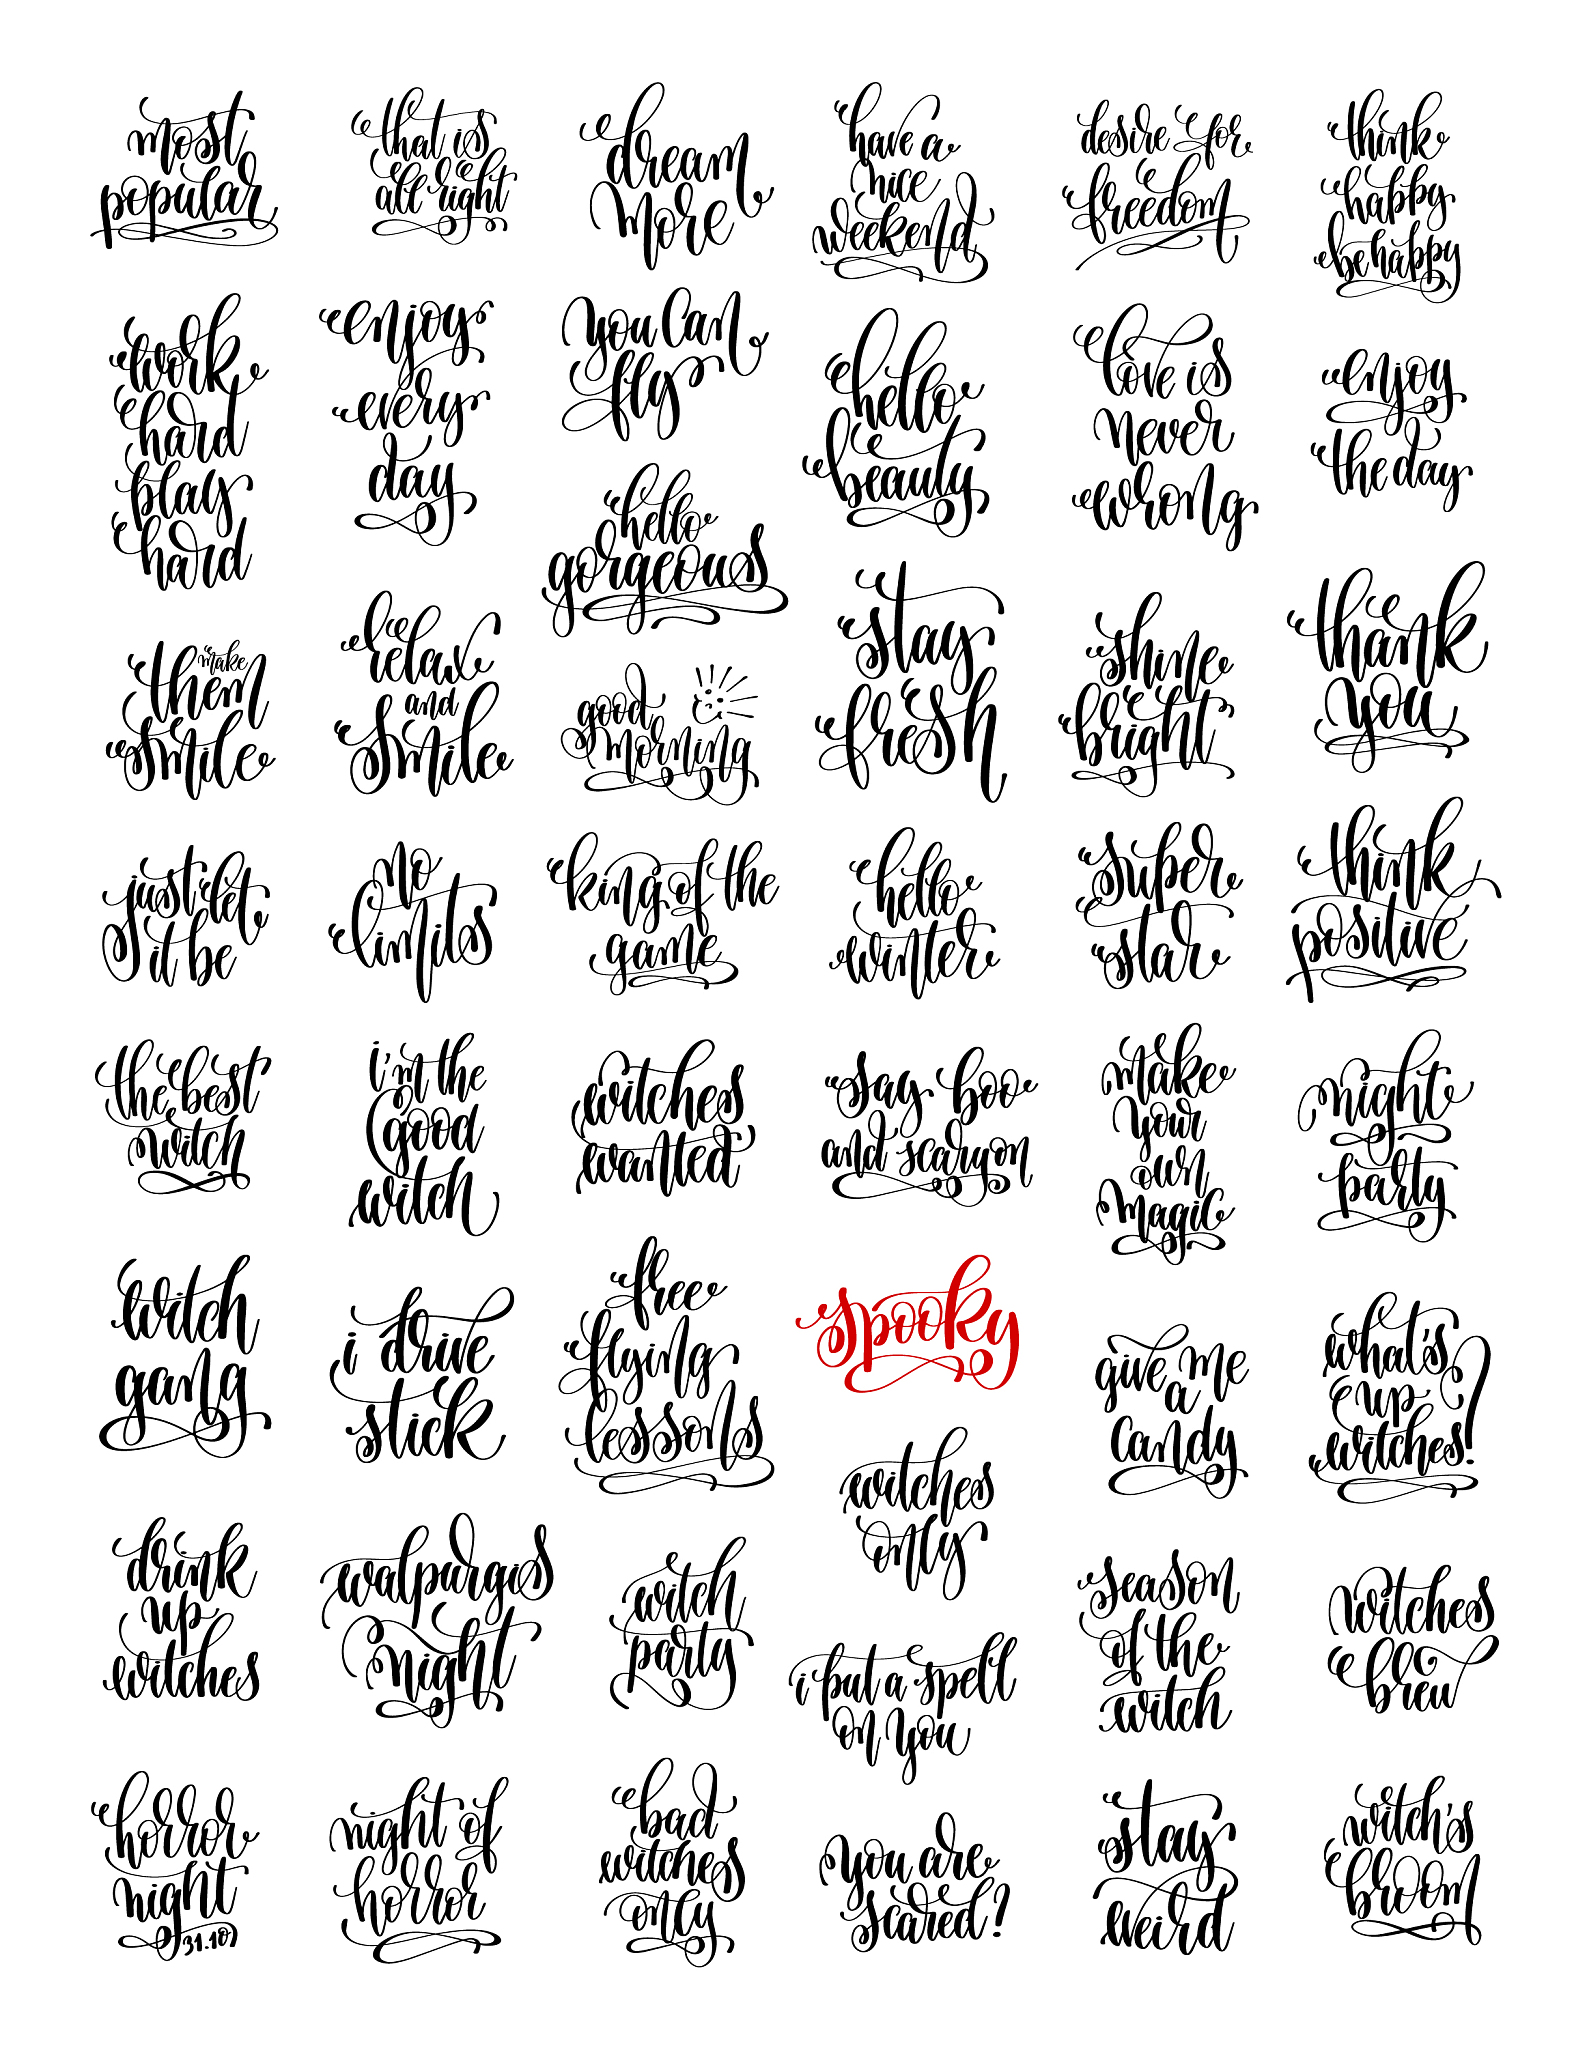 most
popular
that is
all right
dream
more
have a
nice
weekend
desire for
freedom
think
happy
be happy
work
hard
play
hard
enjoy
every
day
you can
fly
hello
beauty
love is
never
wrong
enjoy
the day
hello
gorgeous
make
them
smile
relax
and
smile
good
morning
stay
fresh
shine
bright
thank
you
just let
it be
no
limits
king of the
game
hello
winter
super
star
think
positive
the best
witch
i'm the
good
witch
witches
wanted
say boo
and scary on
make
your
own
magic
night
party
witch
gang
i drive
stick
free
flying
lessons
spooky
give me
a
candy
what's
up
witches?
witches
only
drink
up
witches
walpurgis
night
witch
party
i put a spell
on you
season
of the
witch
witches
brew
horror
night
31.10
night of
horror
bad
witches
only
you are
scared?
stay
weird
witch's
broom